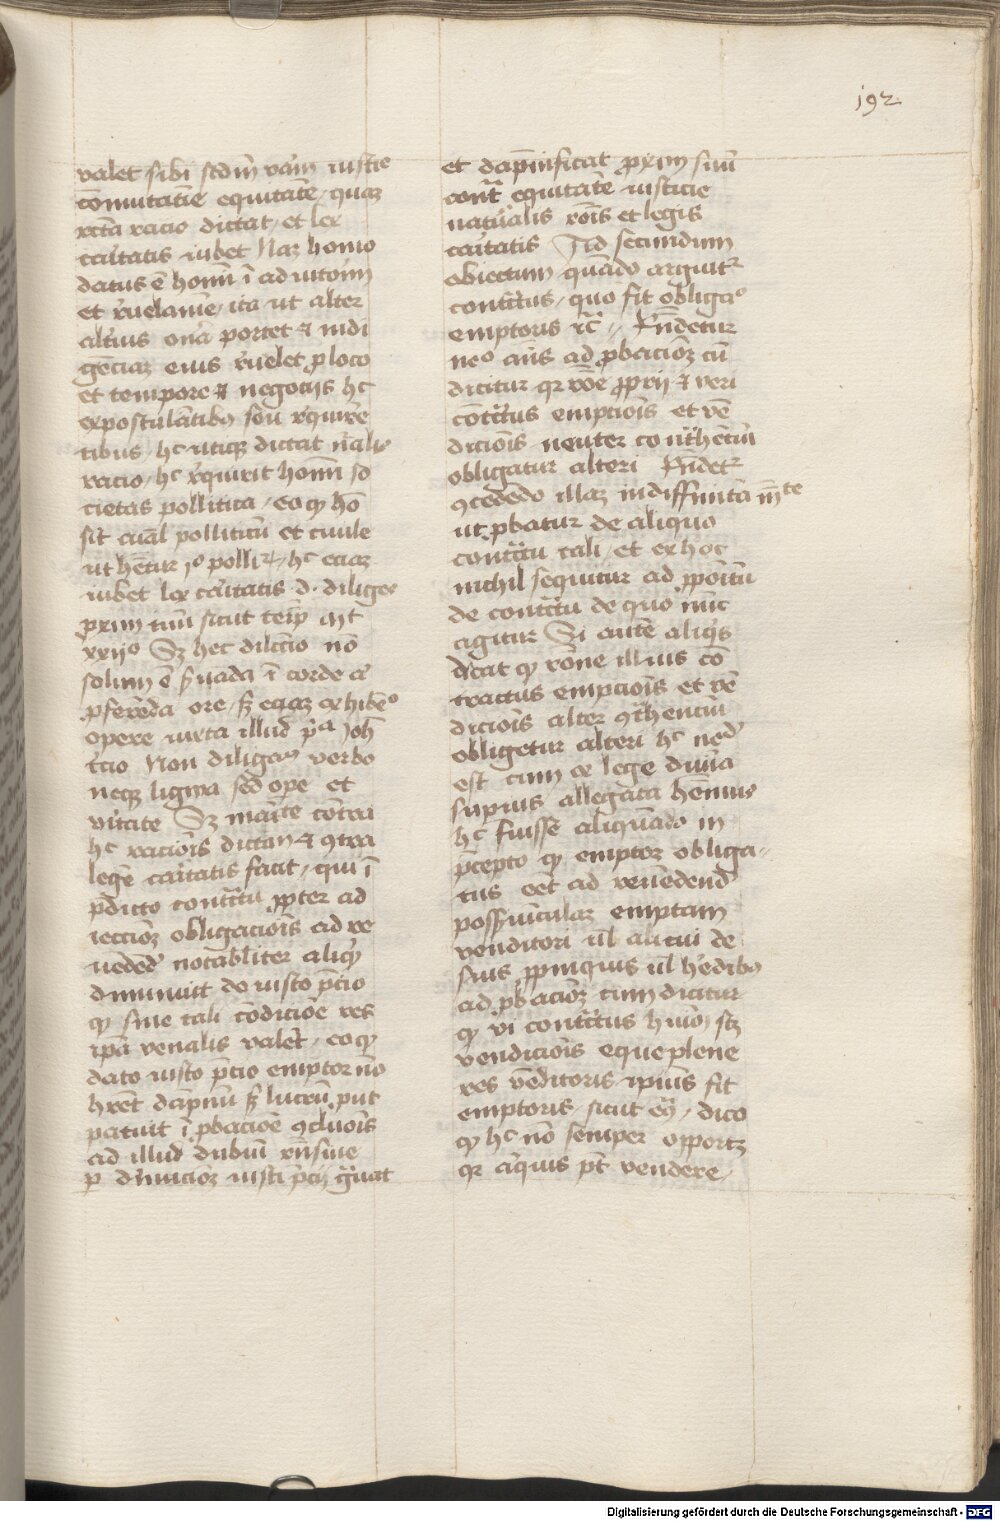 192
valet sibi scdm vam iusticie
comutatie equitate quaz
recta racio dictat et lex
caritatis iubet Naz homo
datus e homi i adiutoriu
et revelame ita ut alter
alterius onera portet et indi
genciaz eius revelet pro loco
et tempore et negocijs hoc
expostulatibus seu require
tibus hoc utique dictat nalis
racio hoc requirit homi so
cietas pollitica eo quod ho
sit aial polliticu et civile
ut hetur jo polli hoc eciaz
iubet lex caritatis d. diliges
pximu tuu sicut teipm Mt
xxijo Sz hec dilectio no
solum e servada i corde et
proferenda ore sz eciaz exhibeo
opere iuxta illud pa Joh
tercio Non diligamus verbo
neque ligwa sed ope et
veritate Sz contra
hoc racionis dictam et contra
legem caritatis facit qui i
predicto contractu propter ad
ieccioz obligacionis ad re
vedendum notabliter aliquid
diminuit de iusto precio
quod sine tali condicione res
ipa venalis valeret eo quod
dato iusto precio emptor no
heret dampnu sz lucru put
patuit i probacione conclusionis
ad illud dubiu
per diminucioz iusti precij gravat
et dampnificat proximu suu
contra equitate iusticie
naturalis rois et legis
caritatis Ad secundum
obiectum quando arguitur
contractus quo fit obligao
emptoris etc Respondetur
nego ans ad probacioz cu
dicitur quia roe proprij et veri
contractus empcionis et ve
dicionis neuter contrahenciu
obligatur alteri Respondetur
concededo illaz indiffinita
ut probatur de aliquo
contractu tali et ex hoc
nichil sequitur ad propositu
de contractu de quo nunc
agitur Si aute aliquis
dicat quod roe illius co
tractus empcionis et ve
dicionis alter contrahenciu
obligetur alteri hoc
est cum ex lege divina
superius allegata habemus
hoc fuisse aliquando in
precepto quod emptor obliga
tus eet ad revendendum
possessiunculaz emptam
venditori vel alicui de
suis propinquis vel heredibus
ad probacioz cum dicitur
quod vi contractus huiusmodi scz
vendicionis eque plene
res venditoris ipsius fit
emptoris sicut dico
quod hoc no semper opportz
quia aliquis potest vendere
Digitalisierung gefördert durch die Deutsche Forschungsgemeinschaft - DFG